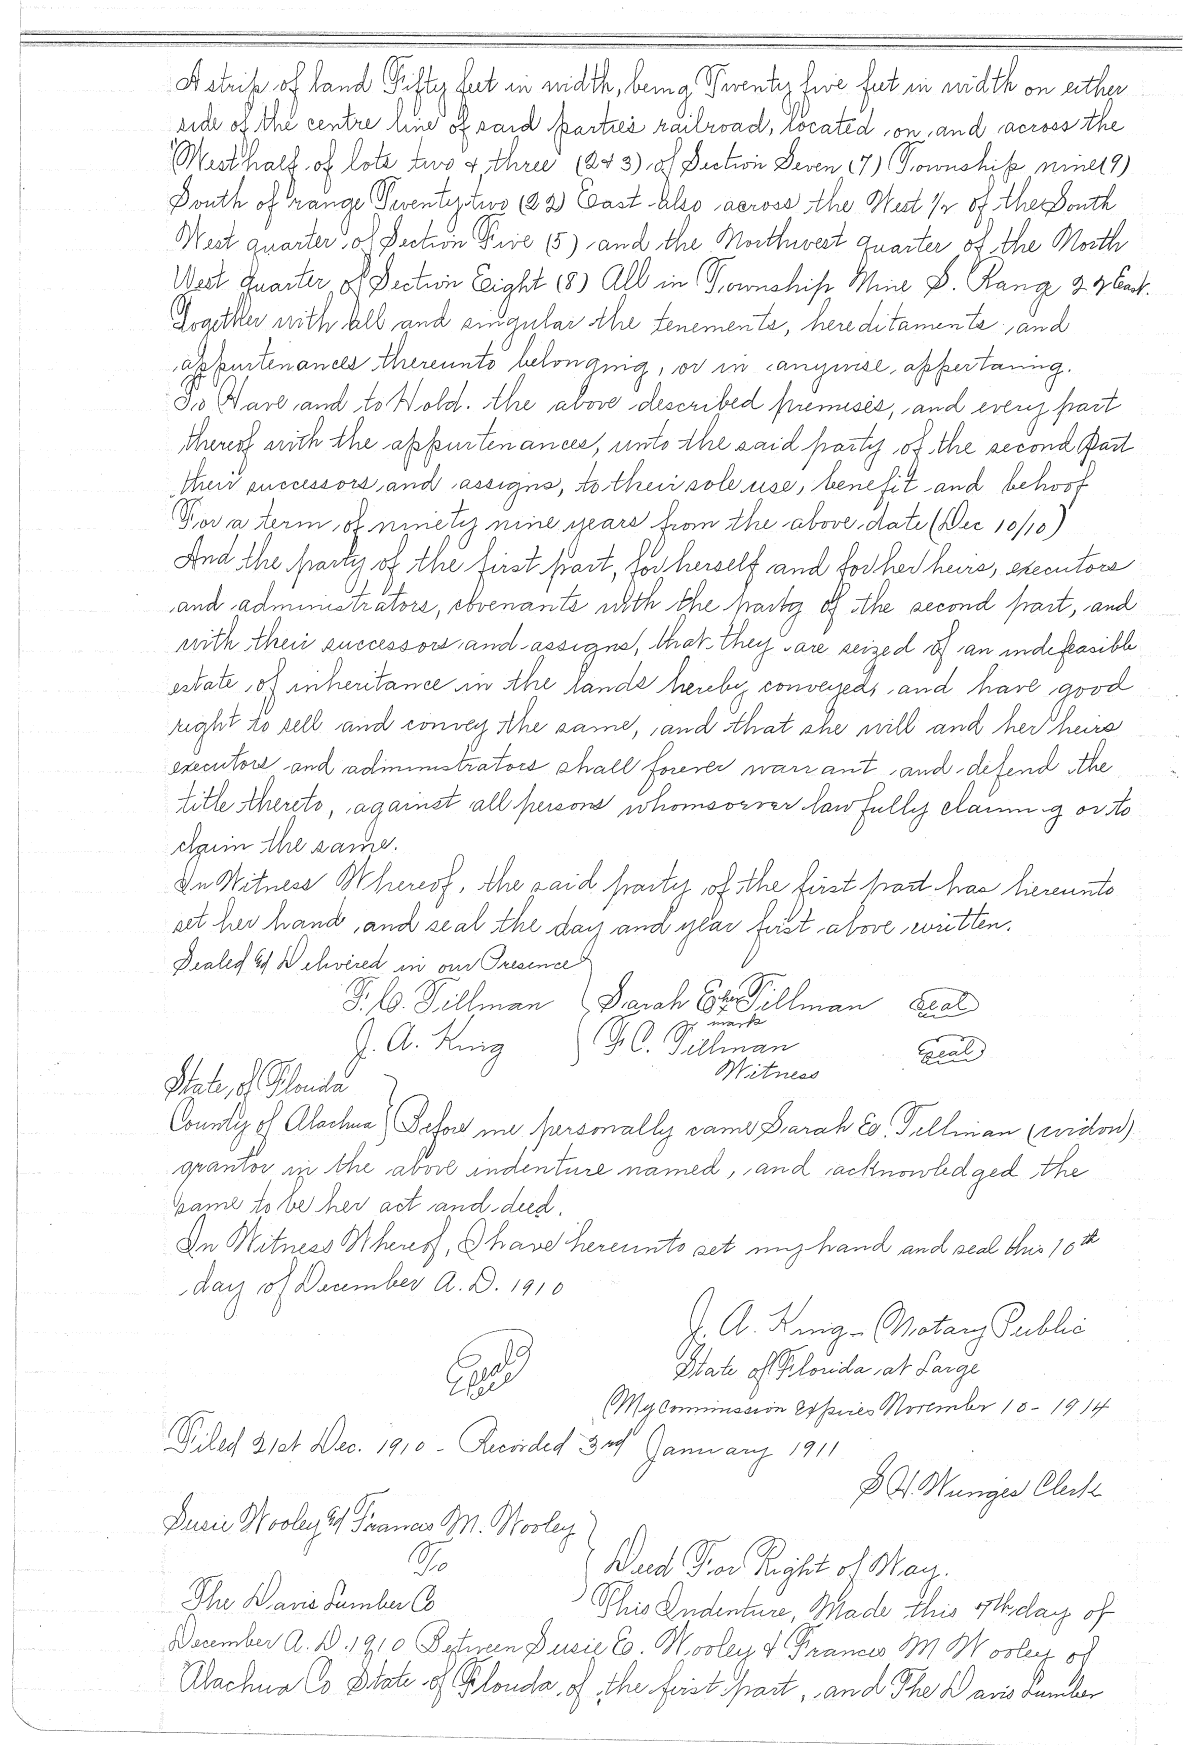 A strip of land Fifty feet in width, being Twenty five feet in width on either
side of the centre line of said parties railroad, located on and across the
West half of lots two & three (2 & 3) of Section Seven (7) Township nine (9)
South of range Twenty two (22) East also across the West 1/2 of the South
West quarter of Section Five (5) and the Northwest quarter of the North
West quarter of Section Eight (8) All in Township Nine S. Rang 22 East.
Together with all and singular the tenements, hereditaments and
appurtenances thereunto belonging, or in anywise appertaning.
To Have and to Hold. the above described premises, and every part
thereof with the appurtenances, unto the said party of the second Part
their successors and assigns, to their sole use, benefit and behoof
For a term of ninety nine years from the above date (Dec 10/10)
And the party of the first part, for herself and for her heirs, executors
and administrators, covenants with the party of the second part, and
with their successors and assigns, that they are seized of an indefeasible
estate of inheritance in the lands hereby conveyed, and have good
right to sell and convey the same, and that she will and her heirs
executors and administrators shall forever warrant and defend the
title thereto, against all persons whomsoever lawfully claiming or to
claim the same.
In Witness Whereof, the said party of the first part has hereunto
set her hand and seal the day and year first above written.
Sealed & Delivered in our Presence
F. C. Tillman } Sarah E. her x Tillman Seal
mark
J. A. King } F. C. Tillman Seal
Witness
State of Florida }
County of Alachua } Before me personally came Sarah E. Tillman (widow)
grantor in the above indenture named, and acknowledged the
same to be her act and deed.
In Witness Whereof, I have hereunto set my hand and seal this 10th
day of December A. D. 1910
J. A. King - Notary Public
Seal State of Florida at Large
My Commission expires November 10 - 1914
Filed 21st Dec. 1910 - Recorded 3rd January 1911
S. H. Wienges Clerk
Susie Wooley & Francis M. Wooley }
To } Deed For Right of Way.
The Davis Lumber Co } This Indenture, Made this 7th day of
December A. D. 1910 Between Susie E. Wooley & Francis M Wooley of
Alachua Co State of Florida of the first part, and The Davis Lumber